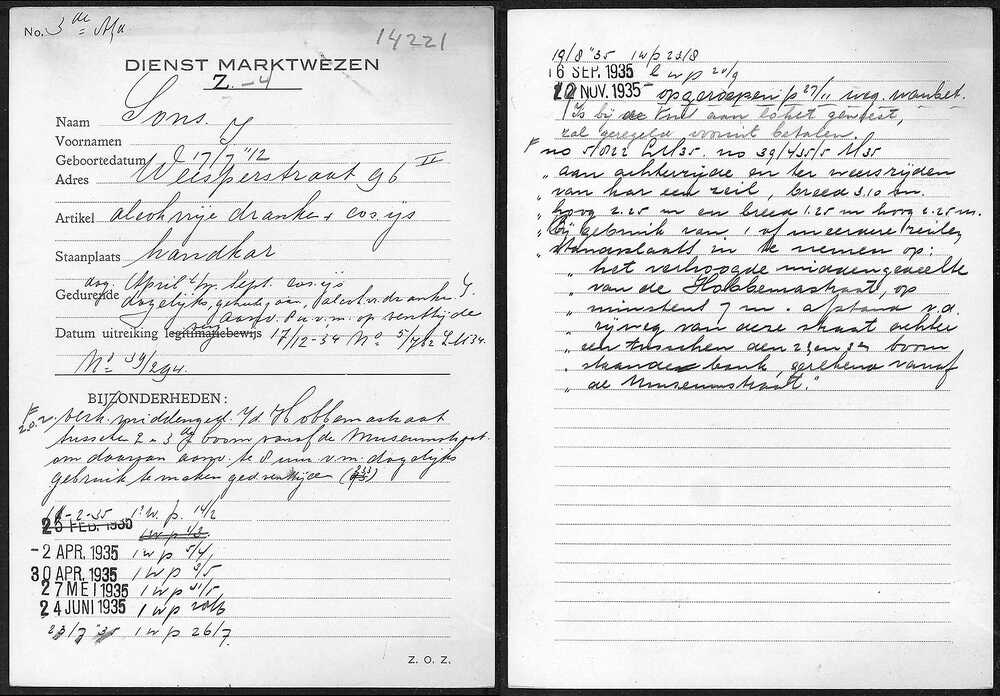 No. 3de Afd
14221
DIENST MARKTWEZEN
Z.-4
Naam Sons.
Voornamen J
Geboortedatum 17/7 '12
Adres Weesperstraat 96 II
Artikel alcohvrije dranken + cosijs
Staanplaats handkar
dag. April t/m Sept. cosijs
Gedurende dagelijks, geheele jaar, alcoh.v. dranken
aanv. 8 u.v.m. op venttijde
Datum uitreiking legitimatiebewijs 17/12-34 No. 5/4/62 L.M.34.
No 39/294.
BIJZONDERHEDEN:
z.o.z. verh. middenged. v/d. Hobbemastraat
tusschen 2 - 3de boom vanaf de Museumstraat
om daarvan aanv. te 8 uur v.m. dagelijks
gebruik te maken ged. venttijde
1-2-35 1 w. p. 14/2
25 FEB. 1935 1 w p 1/3
-2 APR. 1935 1 w p 5/4
30 APR. 1935 1 w p 3/5
27 MEI 1935 1 w p 31/5
24 JUNI 1935 1 w p
23/7 '35 1 w p 26/7
Z. O. Z.
19/8 '35 1 w p 23/8
16 SEP. 1935 1 w p 20/9
20 NOV. 1935 - opgeroepen p 27/11 weg. wanbet.
Is bij de aan geweest,
zal geregeld vooruit betalen.
no 5/0/22 L.M.35. no 39/435/5 M35
" aan achterzijde en ter weerszijden
" van kar een zeil, breed 3.10 m.
" hoog 2.25 m en breed 1.25 m hoog 2.25 m.
" Bij gebruik van 1 of meerdere zeilen
" standplaats in te nemen op:
" het verhoogde middengedeelte
" van de Hobbemastraat, op
" minstens 7 m. afstand v.d.
" rijweg van deze straat achter
" een tusschen den 2en en 3en boom
" staande bank, gerekend vanaf
" de Museumstraat."